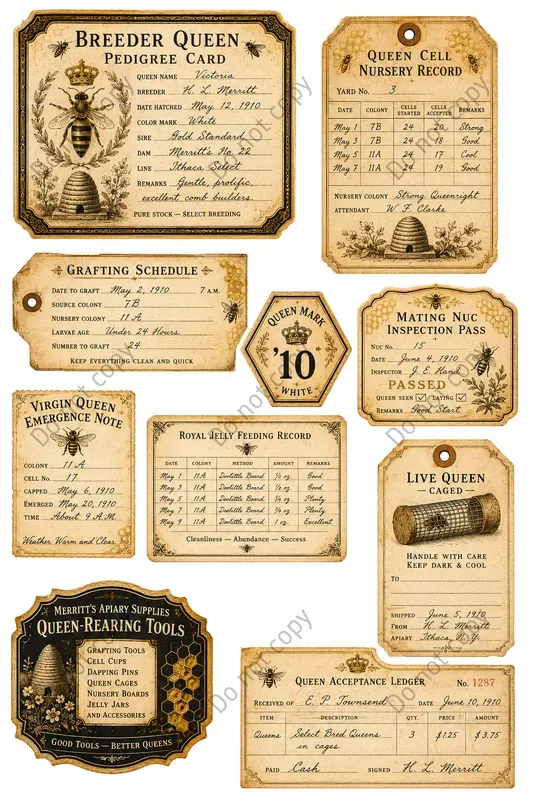 BREEDER QUEEN
PEDIGREE CARD
QUEEN NAME Victoria
BREEDER H. L. Merritt
DATE HATCHED May 12, 1910
COLOR MARK White
SIRE Gold Standard
DAM Merritt's No. 22
LINE Ithaca Select
REMARKS Gentle, prolific,
excellent comb builders.
PURE STOCK — SELECT BREEDING
QUEEN CELL
NURSERY RECORD
YARD NO. 3
DATE COLONY CELLS STARTED CELLS ACCEPTED REMARKS
May 1 7B 24 20 Strong
May 3 7B 24 18 Good
May 5 11A 24 17 Cool
May 7 11A 24 19 Good
NURSERY COLONY Strong Queenright
ATTENDANT W. F. Clarke
GRAFTING SCHEDULE
DATE TO GRAFT May 2, 1910 7 A.M.
SOURCE COLONY 7B
NURSERY COLONY 11 A
LARVAE AGE Under 24 Hours
NUMBER TO GRAFT 24
KEEP EVERYTHING CLEAN AND QUICK
QUEEN MARK
'10
WHITE
MATING NUC
INSPECTION PASS
NUC NO. 15
DATE June 4, 1910
INSPECTOR J. E. Hand
PASSED
QUEEN SEEN ☑ LAYING ☑
REMARKS Good Start
VIRGIN QUEEN
EMERGENCE NOTE
COLONY 11 A
CELL NO. 17
CAPPED May 6, 1910
EMERGED May 20, 1910
TIME About 9 A.M.
Weather Warm and Clear
ROYAL JELLY FEEDING RECORD
DATE COLONY METHOD AMOUNT REMARKS
May 1 11A Doolittle Board ½ oz. Good
May 3 11A Doolittle Board ½ oz. Good
May 5 11A Doolittle Board ¾ oz. Plenty
May 7 11A Doolittle Board ¾ oz. Plenty
May 9 11A Doolittle Board 1 oz. Excellent
Cleanliness — Abundance — Success
LIVE QUEEN
— CAGED —
HANDLE WITH CARE
KEEP DARK & COOL
TO
SHIPPED June 5, 1910
FROM H. L. Merritt
APIARY Ithaca, N. Y.
MERRITT'S APIARY SUPPLIES
QUEEN-REARING TOOLS
GRAFTING TOOLS
CELL CUPS
DAPPING PINS
QUEEN CAGES
NURSERY BOARDS
JELLY JARS
AND ACCESSORIES
GOOD TOOLS — BETTER QUEENS
QUEEN ACCEPTANCE LEDGER No. 1287
RECEIVED OF E. P. Townsend DATE June 10, 1910
ITEM DESCRIPTION QTY. PRICE AMOUNT
Queens Select Bred Queens 3 $1.25 $3.75
in cages
PAID Cash SIGNED H. L. Merritt
Do not copy
Do not copy
Do not copy
Do not copy
Do not copy
Do not copy
Do not copy
Do not copy